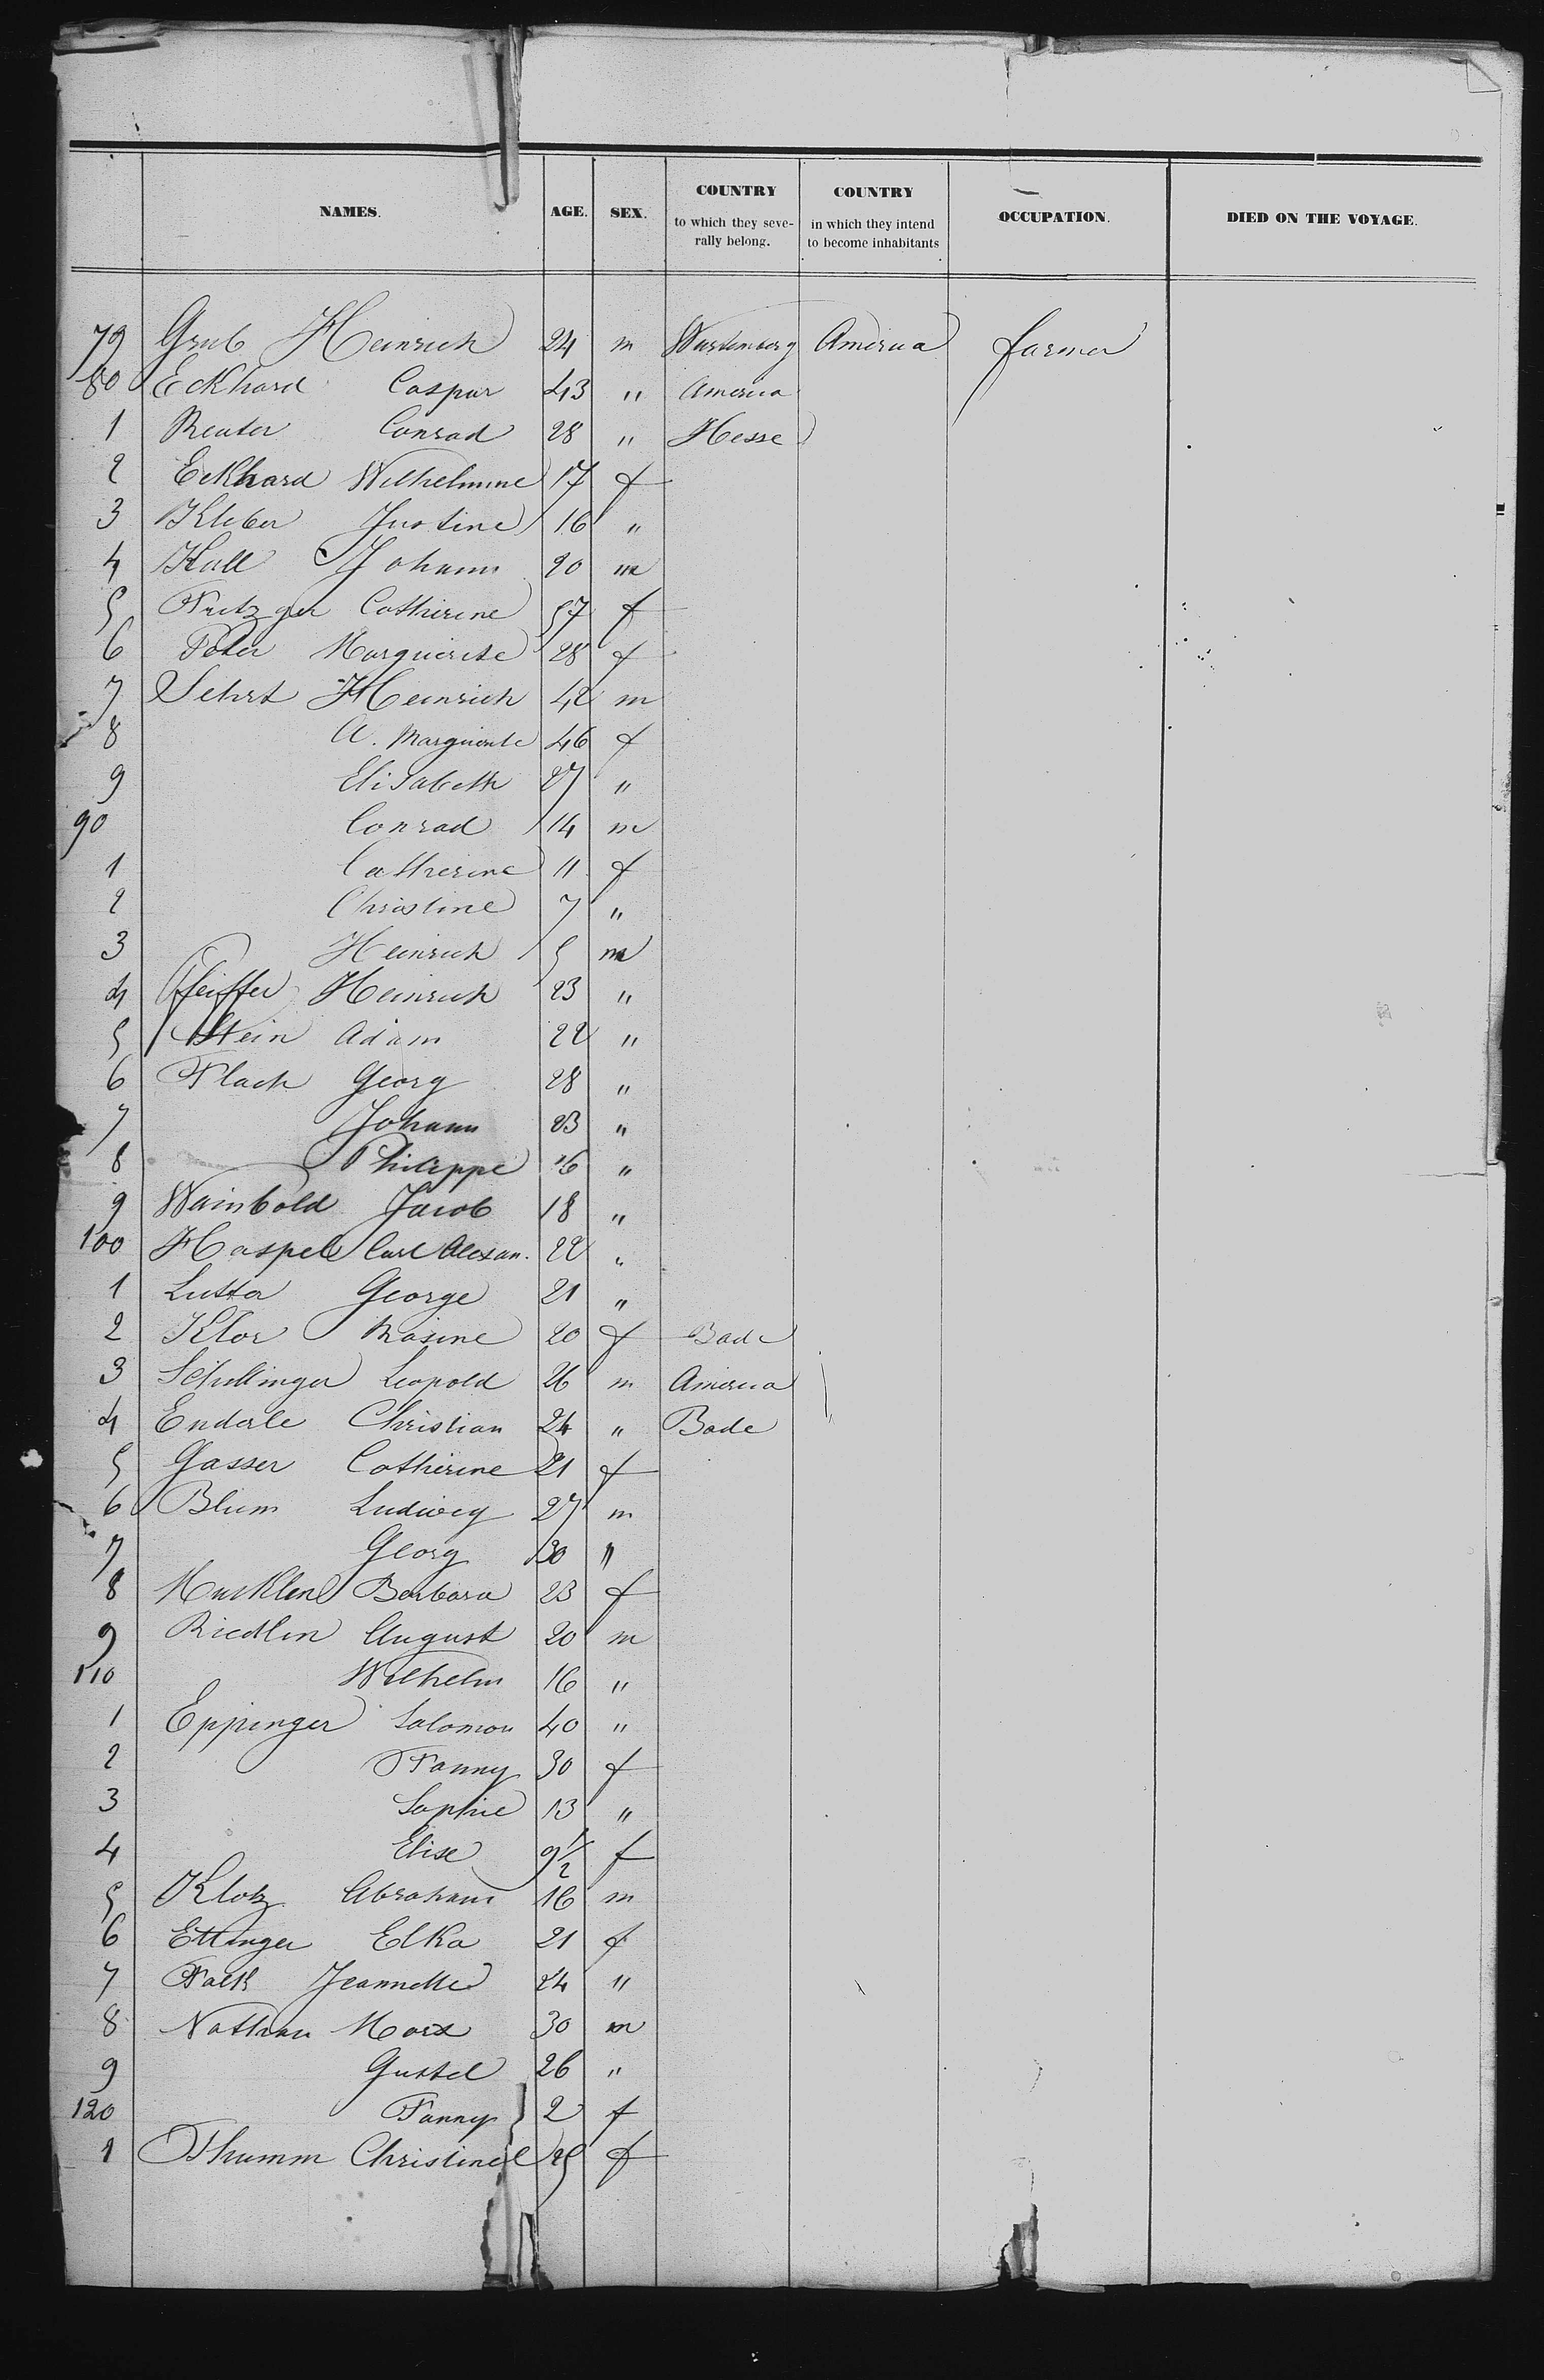 NAMES. AGE. SEX. COUNTRY to which they seve-rally belong. COUNTRY in which they intend to become inhabitants OCCUPATION. DIED ON THE VOYAGE.
79 Grub Heinrich 24 m Wurtemberg America farmer
80 Eckhard Caspar 43 " America
1 Reuter Conrad 28 " Hesse
2 Eckhard Wilhelmine 17 f
3 Kleber Justine 16 "
4 Kall Johann 20 m
5 Fritzger Catherine 57 f
6 Peter Marguerite 28 f
7 Sehrt Heinrich 42 m
8 A. Marguerite 46 f
9 Elisabeth 27 "
90 Conrad 14 m
1 Catherine 11 f
2 Christine 7 "
3 Heinrich 5 m
4 Pfeiffer Heinrich 23 "
5 Stein Adam 22 "
6 Flach Georg 28 "
7 Johann 23 "
8 Philippe 26 "
9 Wambold Jacob 18 "
100 Haspel Carl Alexan. 22 "
1 Lutta George 21 "
2 Klor Rosine 20 f Bade
3 Schillinger Leopold 26 m America
4 Enderle Christian 24 " Bade
5 Gasser Catherine 21 f
6 Blum Ludwig 27 m
7 Georg 30 "
8 Barbara 23 f
9 Riedlin August 20 m
110 Wilhelm 16 "
1 Eppinger Salomon 40 "
2 Fanny 30 f
3 Sophie 13 "
4 Elise 9 1/2 f
5 Klotz Abraham 16 m
6 Ettinger Elka 21 f
7 Falk Jeannette 24 "
8 Nathan Marx 30 m
9 Gustel 26 "
120 Fanny 2 f
1 Thumm Christine 25 f